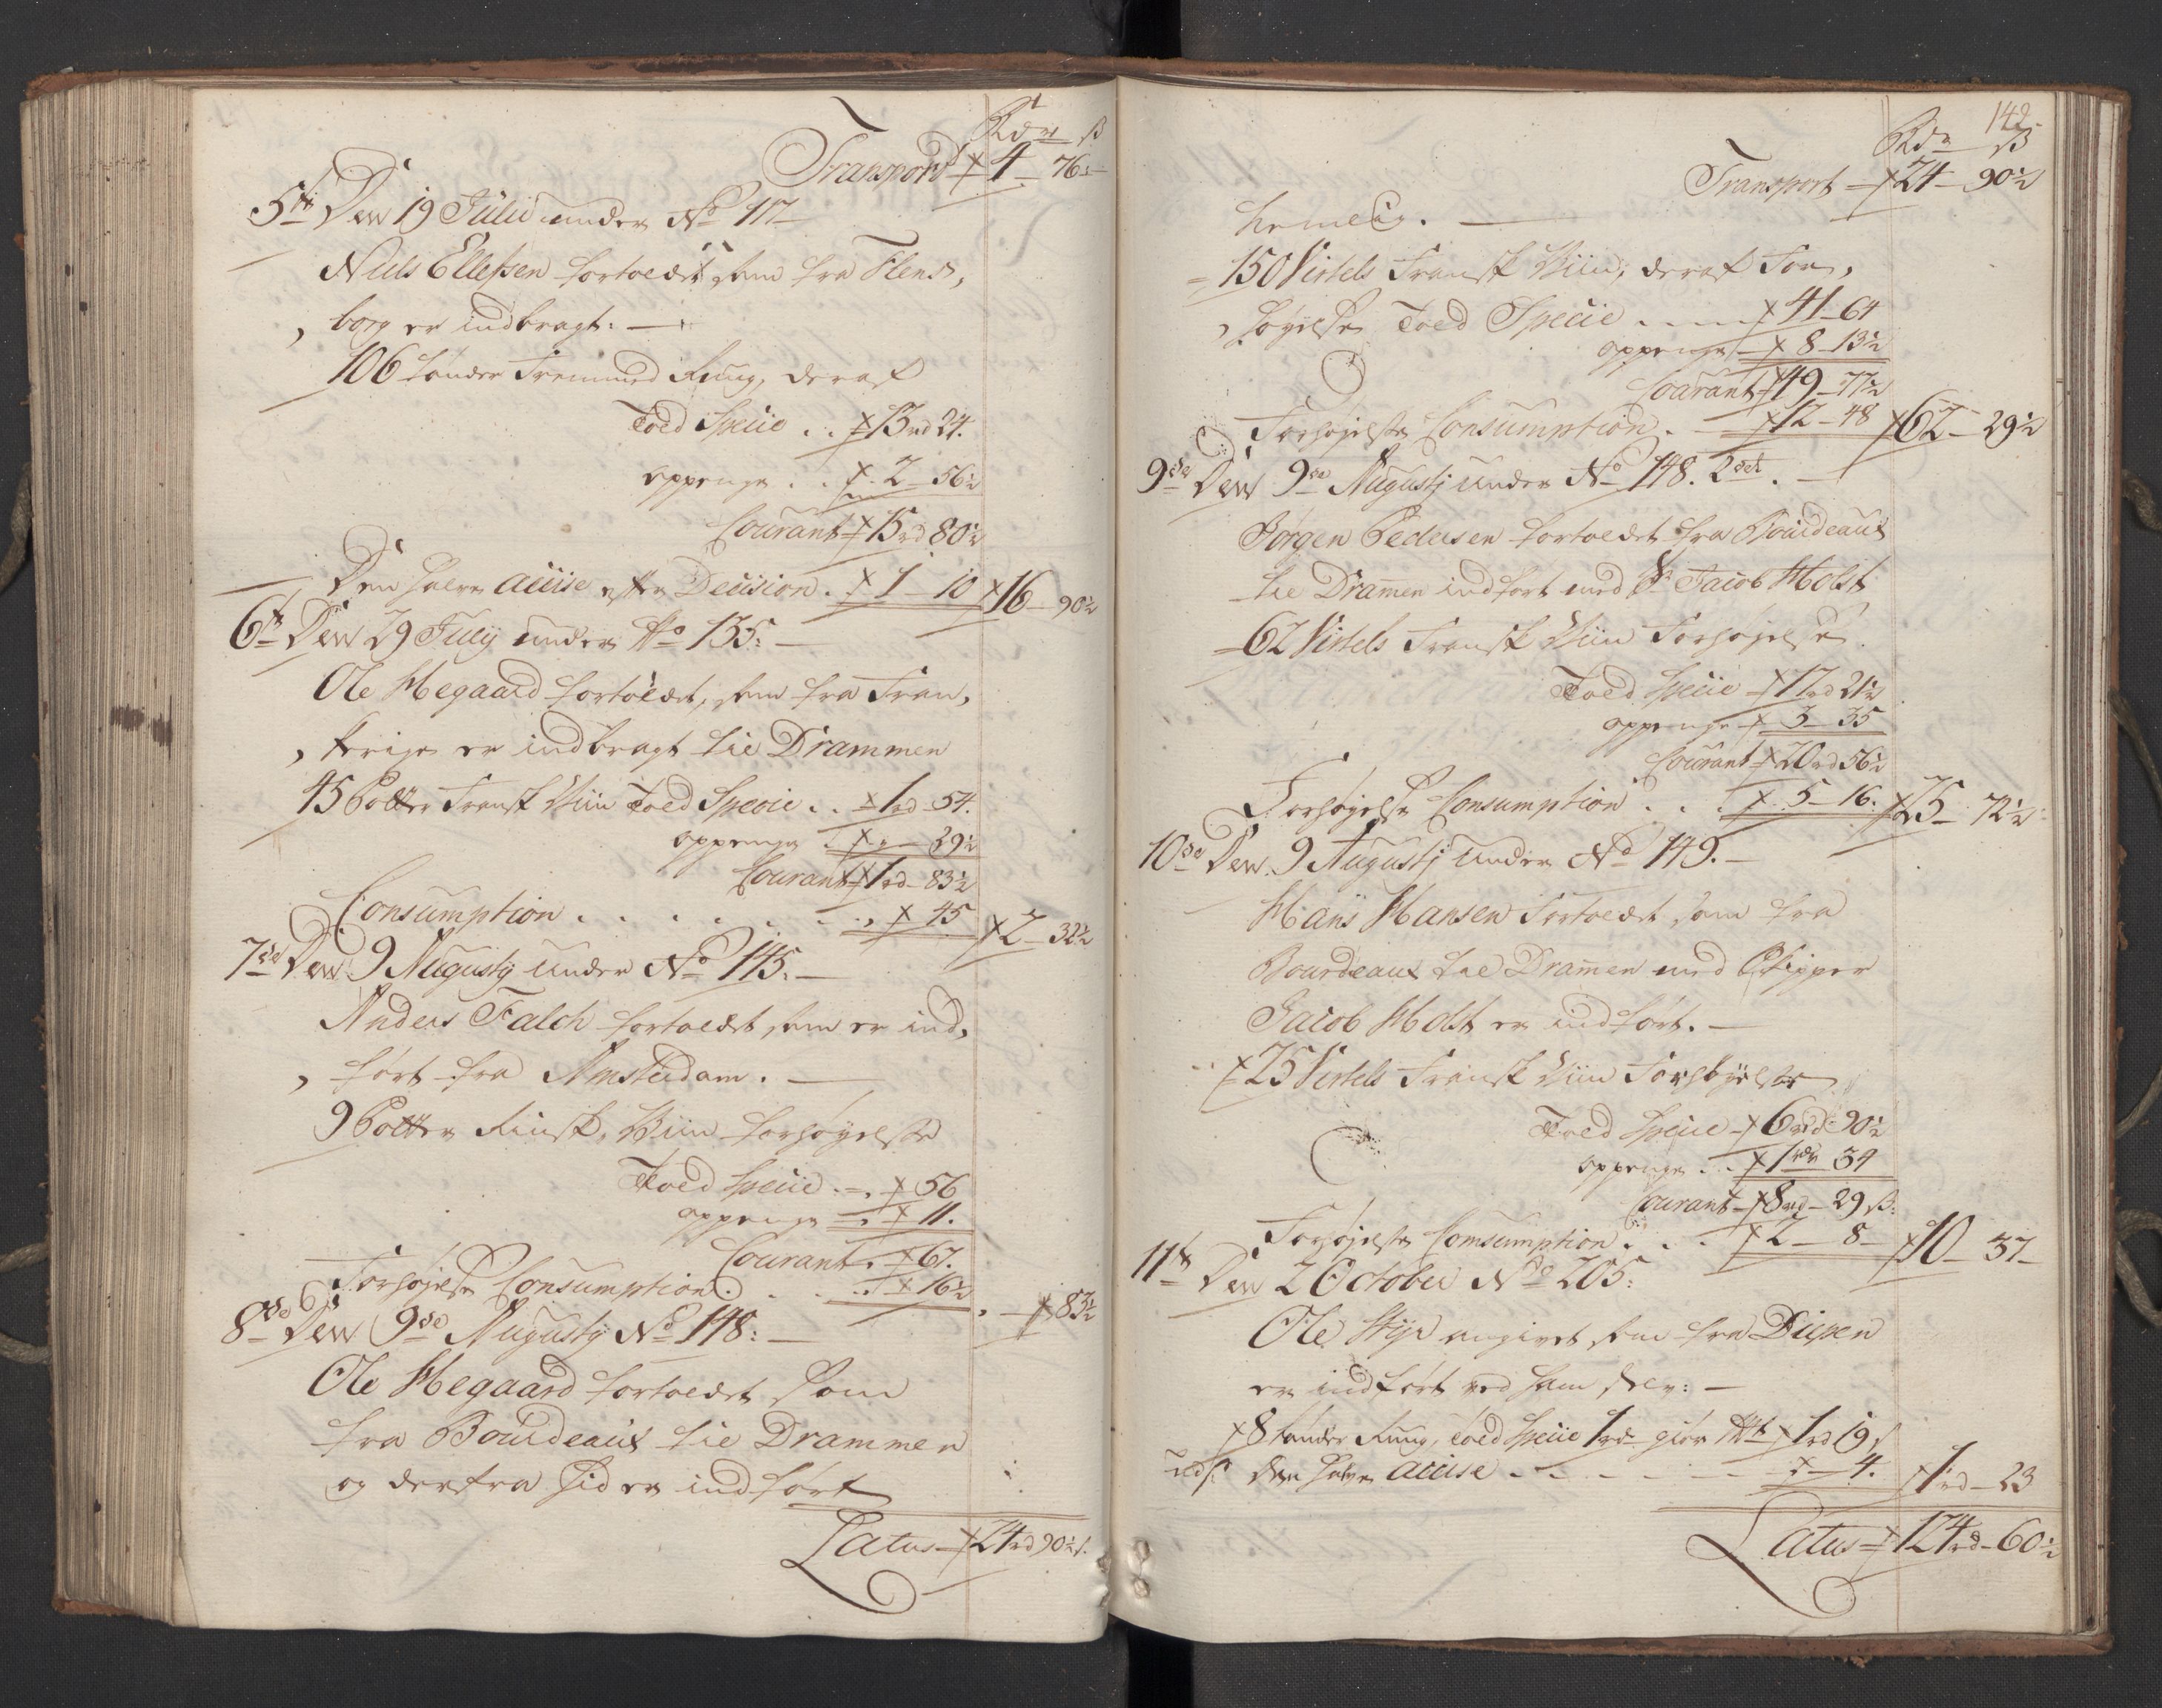 Rdr ß
Transport × 4 - 76 -
5te Den 19 Julii under No 117
Niels Ellefsen fortoldet som fra Flens,
, borg er indbragt: -
106 tønder Fremmed Rug, deraf
Told Specie . . × 13rd 24.
oppenge . . × 2 - 56½
Courant × 15rd 80½
Den halve Accise efter Decision . × 1 - 10 × 16 - 90½
6te Den 29 July under No 135: -
Ole Hegaard fortoldet, som fra Fran,
, kerige er indbragt til Drammen
45 Potter Fransk Viin Told Specie . . × 1rd - 54.
oppenge . × „ - 29½
Courant × 1rd - 83½
Consumption . . . . . . . , × 45 × 2 - 32½
7de Den 9 Augusty under No 145. -
Anders Falch fortoldet som er ind,
, ført fra Amsterdam. -
9 Potter Rinsk Viin forhøyelse
Told Specie . - . × 56
oppenge - . × 11.
Courant . × 67.
Forhøyelse Consumption . . . . × 16½ . - × 83½
8de Den 9de Augusty No 148: -
Ole Hegaard fortoldet som
fra Bourdeaux til Drammen
og derfra hid er indført
Latus × 24rd 90½ ß.
142
Rdr ß
Transport - × 24 - 90½
hemelig. -
150 Virtels Fransk Viin, deraf For,
, høyelse Told Specie . . . × 41 - 64
oppenge - × 8 - 13½
Courant × 49 - 77½
Forhøyelse Consumption . - × 12 - 48 × 62 - 29½
9de Den 9de Augustj under No 148. 2det . -
Jørgen Pedersen fortoldet fra Bourdeaux
til Dramen indført med Sr Jacob Holst
62 Virtels Fransk Viin Forhøjelse
Told Specie - × 17rd 21½
oppenge × 3 - 35
Courant × 20rd 56½
Forhøyelse Consumption . . . × 5 - 16. × 25 - 72½
10de Den 9 Augustj under No 149. -
Hans Hansen Fortoldet som fra
Bourdeaux til Dramen med Skipper
Jacob Holst er indført. -
× 25 Virtels Fransk Viin Forhøyelse
Told Specie - × 6rd - 90½
oppenge . . × 1rdr 34
Courant - × 8rd - 29 ß:
Forhøjelse Comsumption . . . × 2 - 8 - × 10 - 37 -
11te Den 2 October No 205:
Ole angivet som fra Diipen
er indført ved ham selv: -
× 8 tønder Rug, Told Specie 1rd giør × 1rd 19 ß
den halve Accise - . - . - - - × - 4. × 1rd - 23
Latus × 124rd - 60½